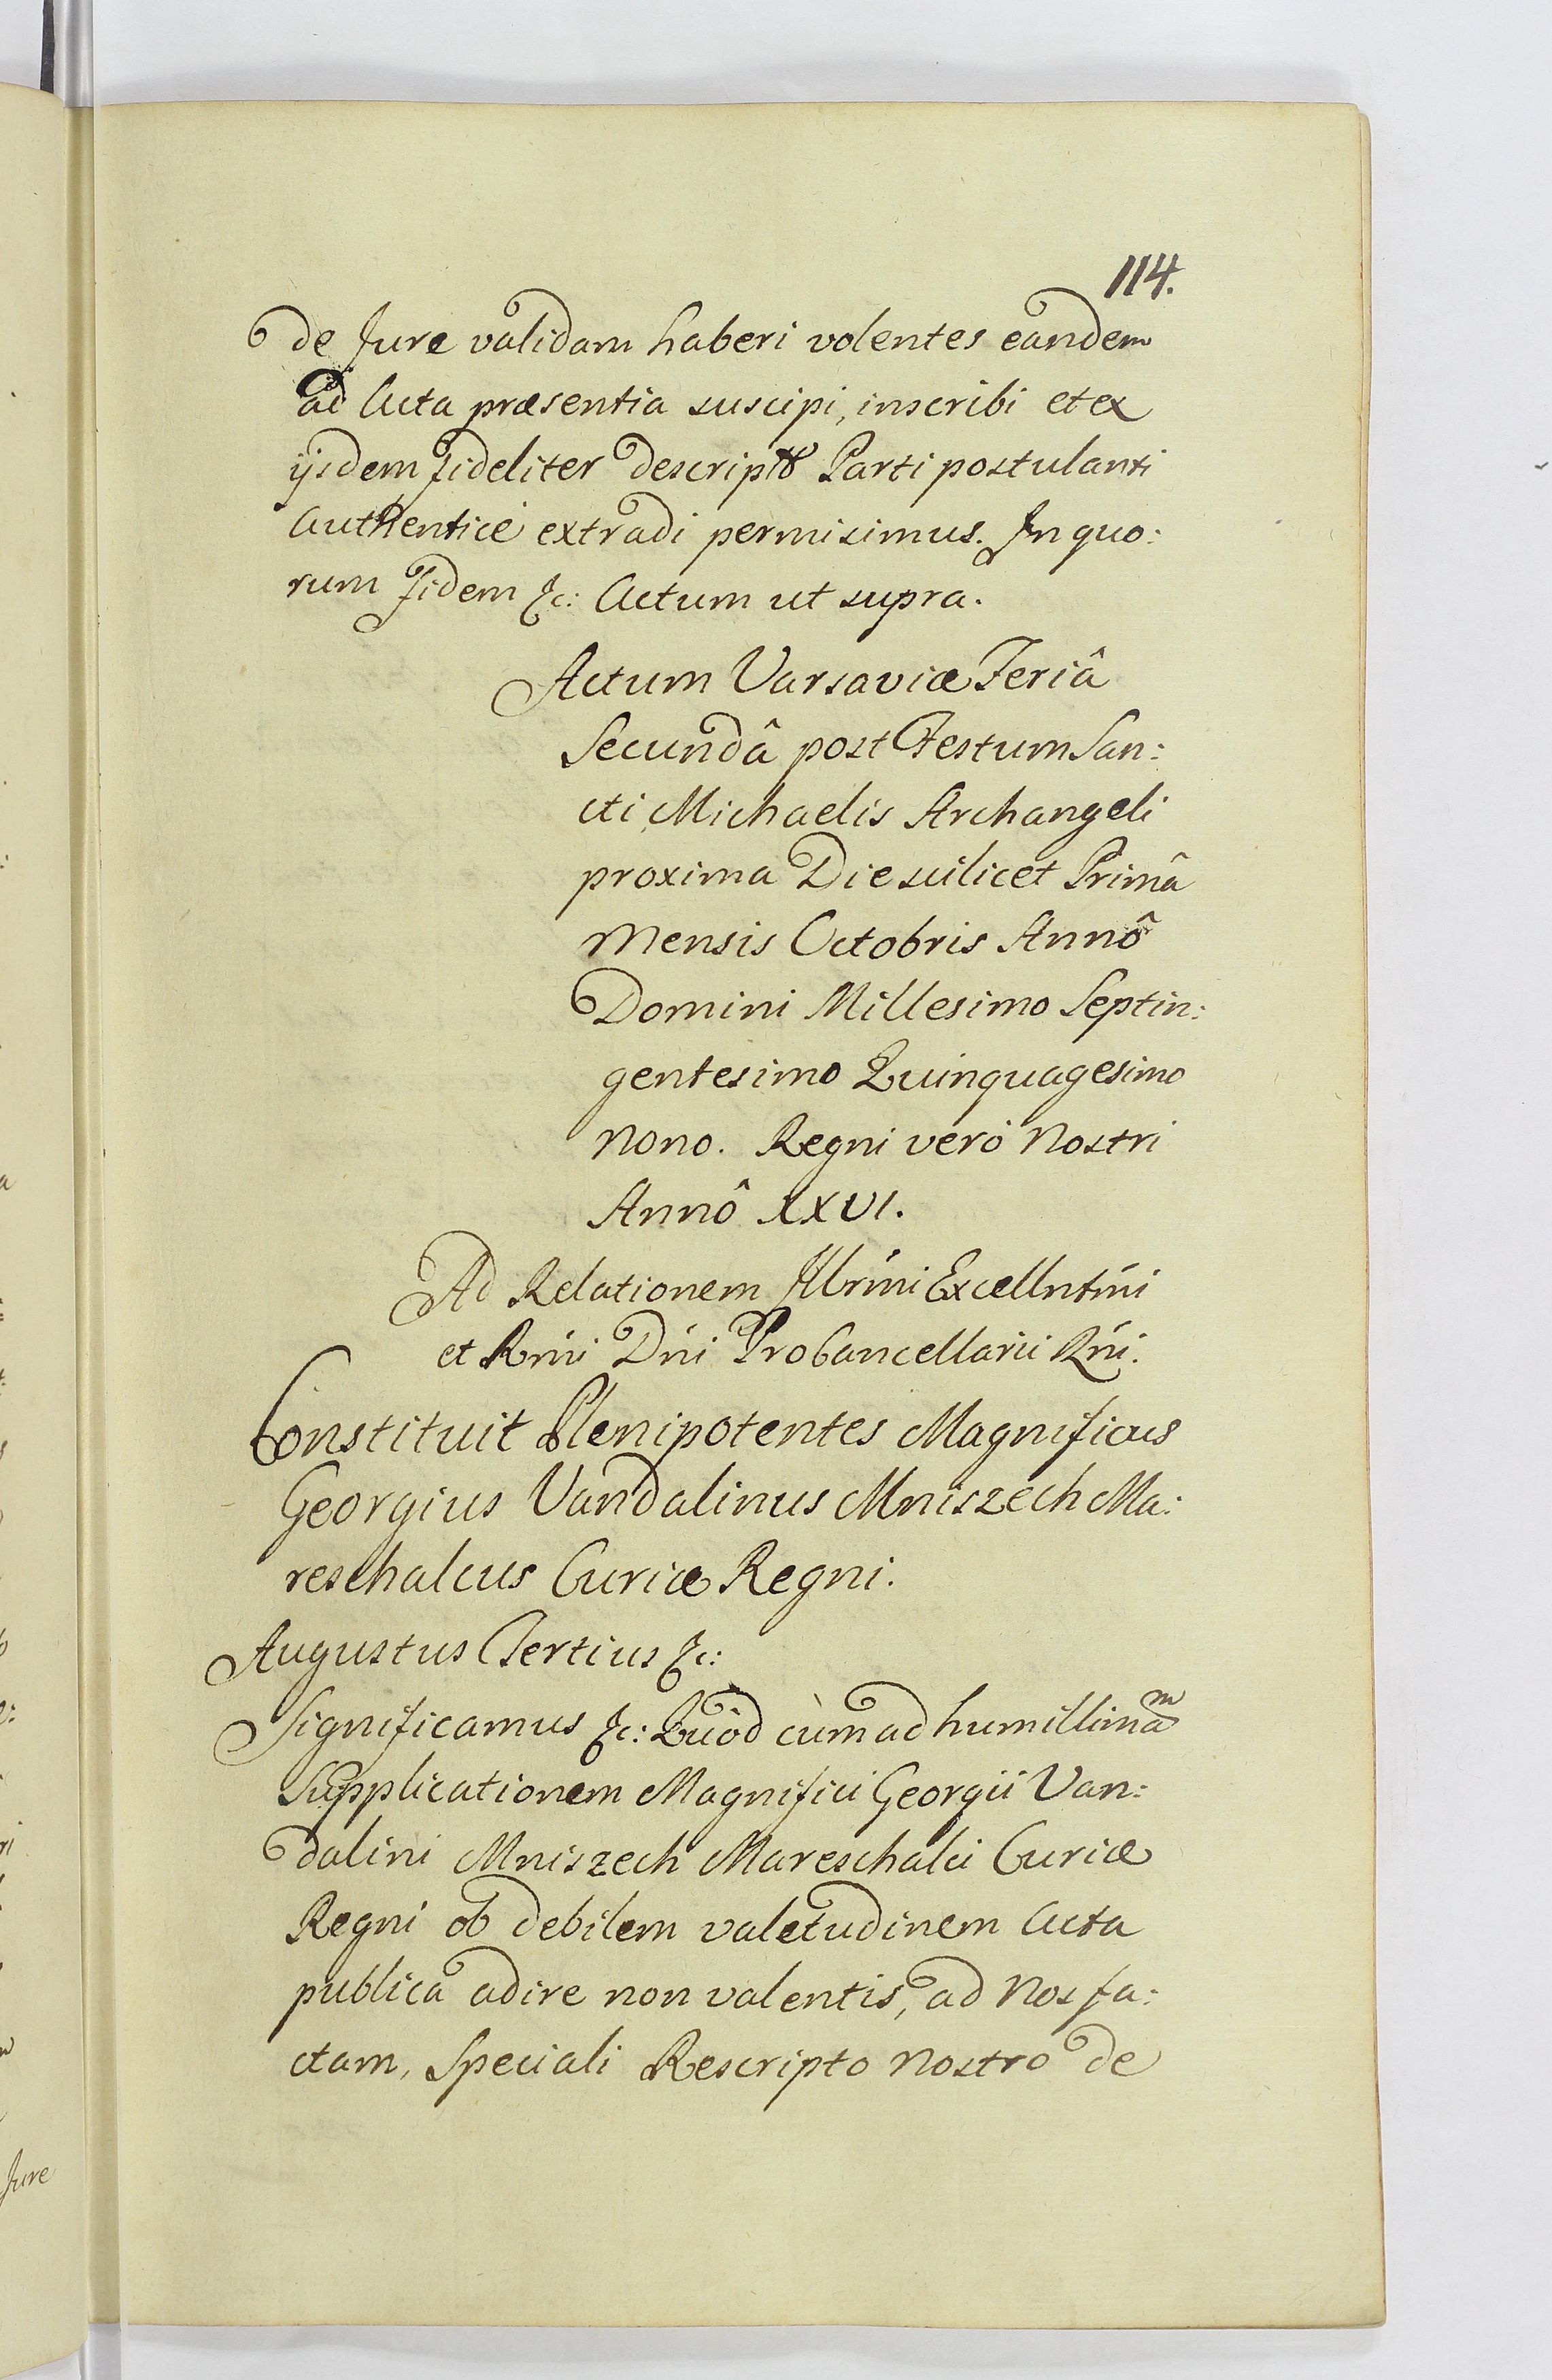 114.
de Jure validam haberi volentes eandem
ad Acta præsentia suscipi, inscribi et ex
ijsdem fideliter descriptã Parti postulanti
Authenticè extradi permisimus. In quo:
rum fidem &c: Actum ut supra.
Actum Varsaviæ Feriâ
Secundâ post Festum San:
cti Michaelis Archangeli
proxima Die scilicet Primâ
Mensis Octobris Annô
Domini Millesimo Septin:
gentesimo Quinquagesimo
Nono. Regni verò Nostri
Annô XXVI.
Ad Relationem Illrmi Excellntmi
et Rmi Dni ProCancellarii Rni.
Constituit Plenipotentes Magnificus
Georgius Vandalinus Mniszech Ma:
reschalcus Curiæ Regni.
Augustus Tertius &c:
Significamus &c: Quòd cùm ad humillimam
Supplicationem Magnifici Georgii Van:
dalini Mniszech Mareschalci Curiæ
Regni ob debilem valetudinem Acta
publica adire non valentis, ad Nos fa:
ctam, Speciali Rescripto Nostro de
Jure